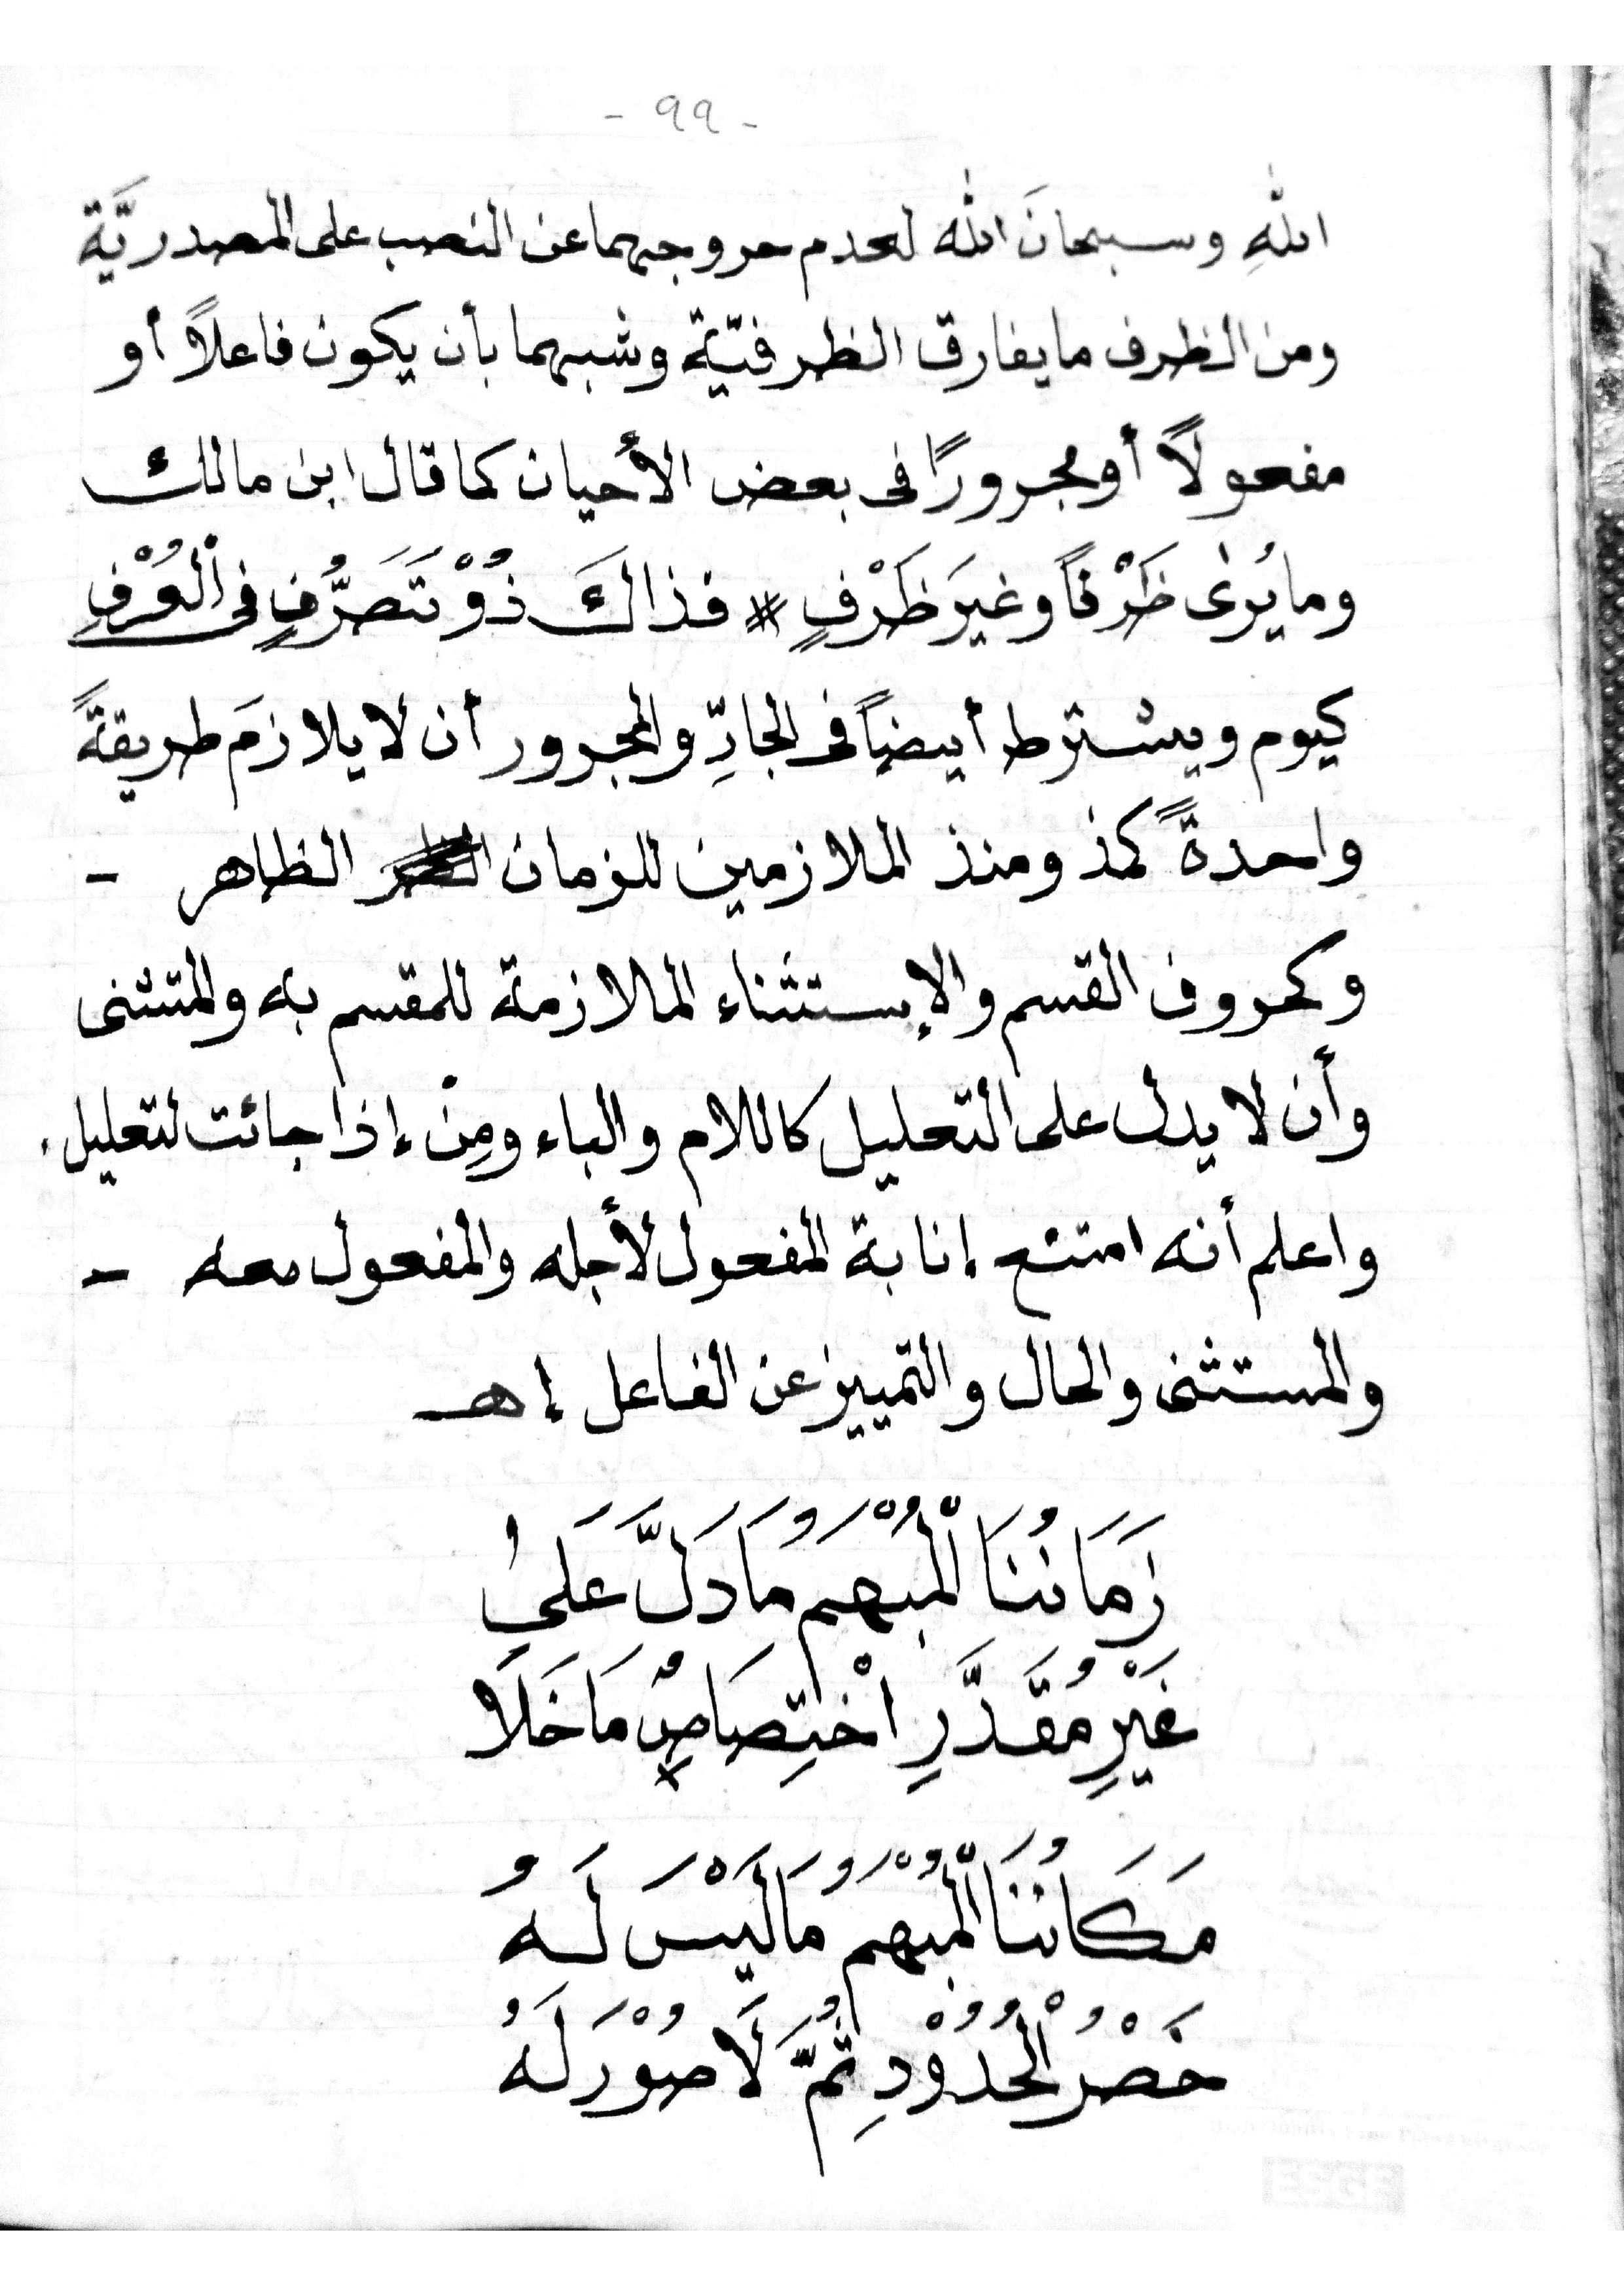 - ٩٩ -
اللهِ وسبحانَ الله لعدم حروجهما عن النصب على المصدريَّة
ومن الظرف ما يفارق الظرفيّة وشبهها بأن يكون فاعلاً أو
مفعولاً أو مجرورًا فى بعض الأحيان كما قال ابن مالك
وما يُرىٰ ظَرْفاً وغيرَ ظَرْفٍ # فذاكَ ذُوْ تَصَرُّفٍ فى الْعُرْفِ
كيوم ويشترط أيضاً فى الجارِّ والمجرور أن لا يلازمَ طريقةً
واحدةً كمذ ومنذ الملازمين للزمان الظاهر -
وكحروف القسم والإستثناء الملازمة للمقسم به والمتثنى
وأن لا يدل على التعليل كاللام والباء ومِنْ إذا جائت لتعليل.
واعلم أنه امتنع إنابة المفعول لأجله والمفعول معه -
والمستثنى والحال والتمييز عن الفاعل إهـ
زَمَانُنَا الْمُبْهَمُ مَا دَلَّ عَلَىٰ
غَيْرِ مُقَدَّرِ اخْتِصَاصٍ مَا خَلَا
مَكَانُنَا الْمُبْهَمُ مَا لَيْسَ لَهُ
حَصْرُ الْحُدُوْدِ ثُمَّ لَا صُوْرَ لَهُ